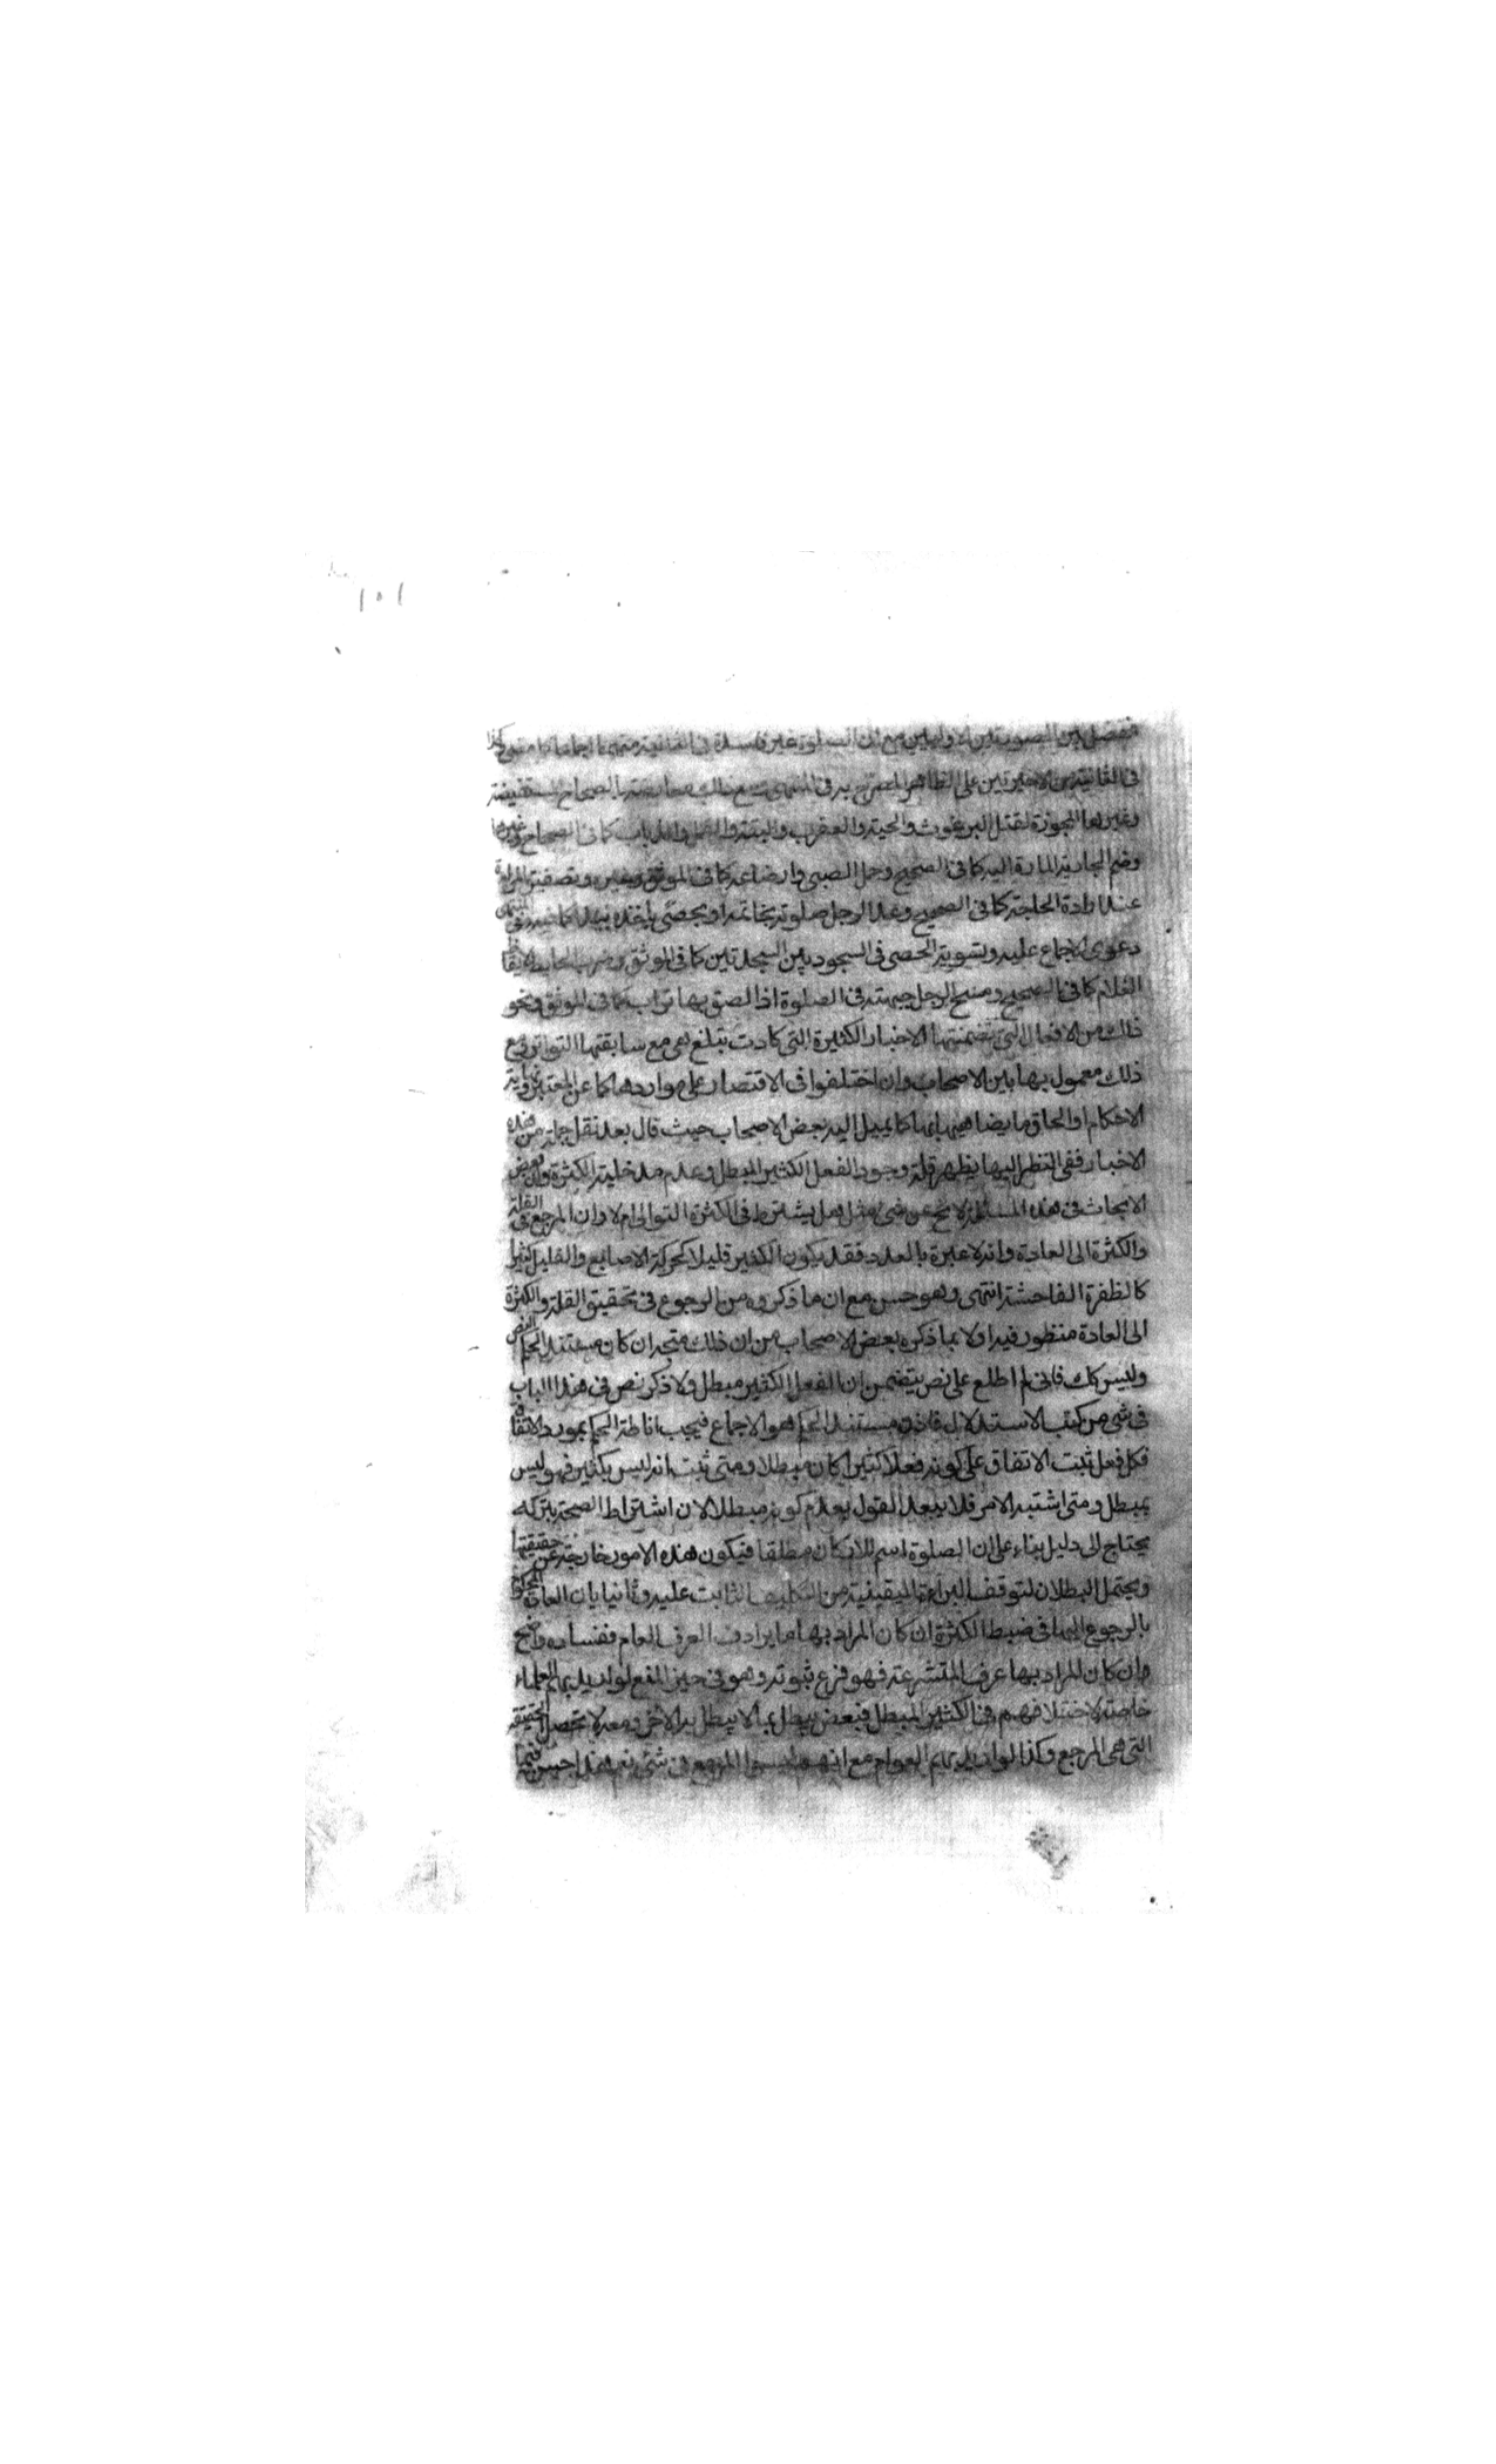 ١٥١
فتفصل بين الصورتين الاوليين مع ان الصلوة غير فاسدة في الثانية منهما اجماعا كذا
في الثانية من الاخيرتين على الظاهر المصرح به في المنتهى مع ذلك معارضتها الصحاح المستفيضة
وغيرها المجوزة لقتل البرغوث والحية والعقرب والبقة والقمل والذباب كما في الصحاح وغيرها
وضم الجارية المارة اليه كما في الصحيح وحمل الصبي وارضاعه كما في الموثق وغيره وتصفيق المراة
عند ارادة الحاجة كما في الصحيح وعد الرجل صلوته بخاتمه او بحصى ياخذه بيده كما فيه وفي المنتهى
دعوى الاجماع عليه وتسوية الحصى في السجود بين السجدتين كما في الموثق وضرب الحايط لايقاظ
الغلام كما في الصحيح ومسح الرجل جبهته في الصلوة اذا لصق بها تراب كما في الموثق ونحو
ذلك من الافعال التي تضمنتها الاخبار الكثيرة التي كادت تبلغ هي مع سابقتها التواتر ومع
ذلك معمول بها بين الاصحاب وان اختلفوا في الاقتصار على مواردها كما عن المعتبر ونهاية
الاحكام او الحاق ما يضاهيها بها كما يميل اليه بعض الاصحاب حيث قال بعد نقل جملة من هذه
الاخبار ففي النظر اليها يظهر قلة وجود الفعل الكثير المبطل وعدم مدخلية الكثرة وان بعض
الابحاث في هذه المسئلة لا يخ عن شئ مثل هل يشترط في الكثرة التوالي ام لا وان المرجع في القلة
والكثرة الى العادة وانه لا عبرة بالعدد فقد يكون الكثير قليلا كحركة الاصابع والقليل كثيرا
كالطفرة الفاحشة انتهى وهو حسن مع ان ما ذكروه من الرجوع في تحقيق القلة والكثرة
الى العادة منظور فيه اولا بما ذكره بعض الاصحاب من ان ذلك متجه ان كان مستند الحكم النص
وليس كك فاني لم اطلع على نص يتضمن ان الفعل الكثير مبطل ولا ذكر نص في هذا الباب
في شئ من كتب الاستدلال فاذن مستند الحكم هو الاجماع فيجب اناطة الحكم بمورد الاتفاق
فكل فعل ثبت الاتفاق على كونه فعلا كثيرا كان مبطلا ومتى ثبت انه ليس بكثير فهو ليس
بمبطل ومتى اشتبه الامر فلا يبعد القول بعدم كونه مبطلا لان اشتراط الصحة بتركه
يحتاج الى دليل بناء على ان الصلوة اسم للاركان مطلقا فتكون هذه الامور خارجة عن حقيقتها
ويحتمل البطلان لتوقف البراءة اليقينية من التكليف الثابت عليه وثانيا بان العادة المحكوم
بالرجوع اليها في ضبط الكثرة ان كان المراد بها ما يرادف العرف العام ففساده واضح
وان كان المراد بها عرف المتشرعة فهو فرع ثبوته وهو في حيز المنع لو اريد بهم العلماء
خاصة لاختلافهم في الكثير المبطل فبعض يبطل بما لا يبطل به الاخر ومعه لا تحصل الحقيقة
التي هي المرجع وكذا لو اريد بهم العوام مع انهم ليسوا المرجع في شئ نعم هذا حسن فيما